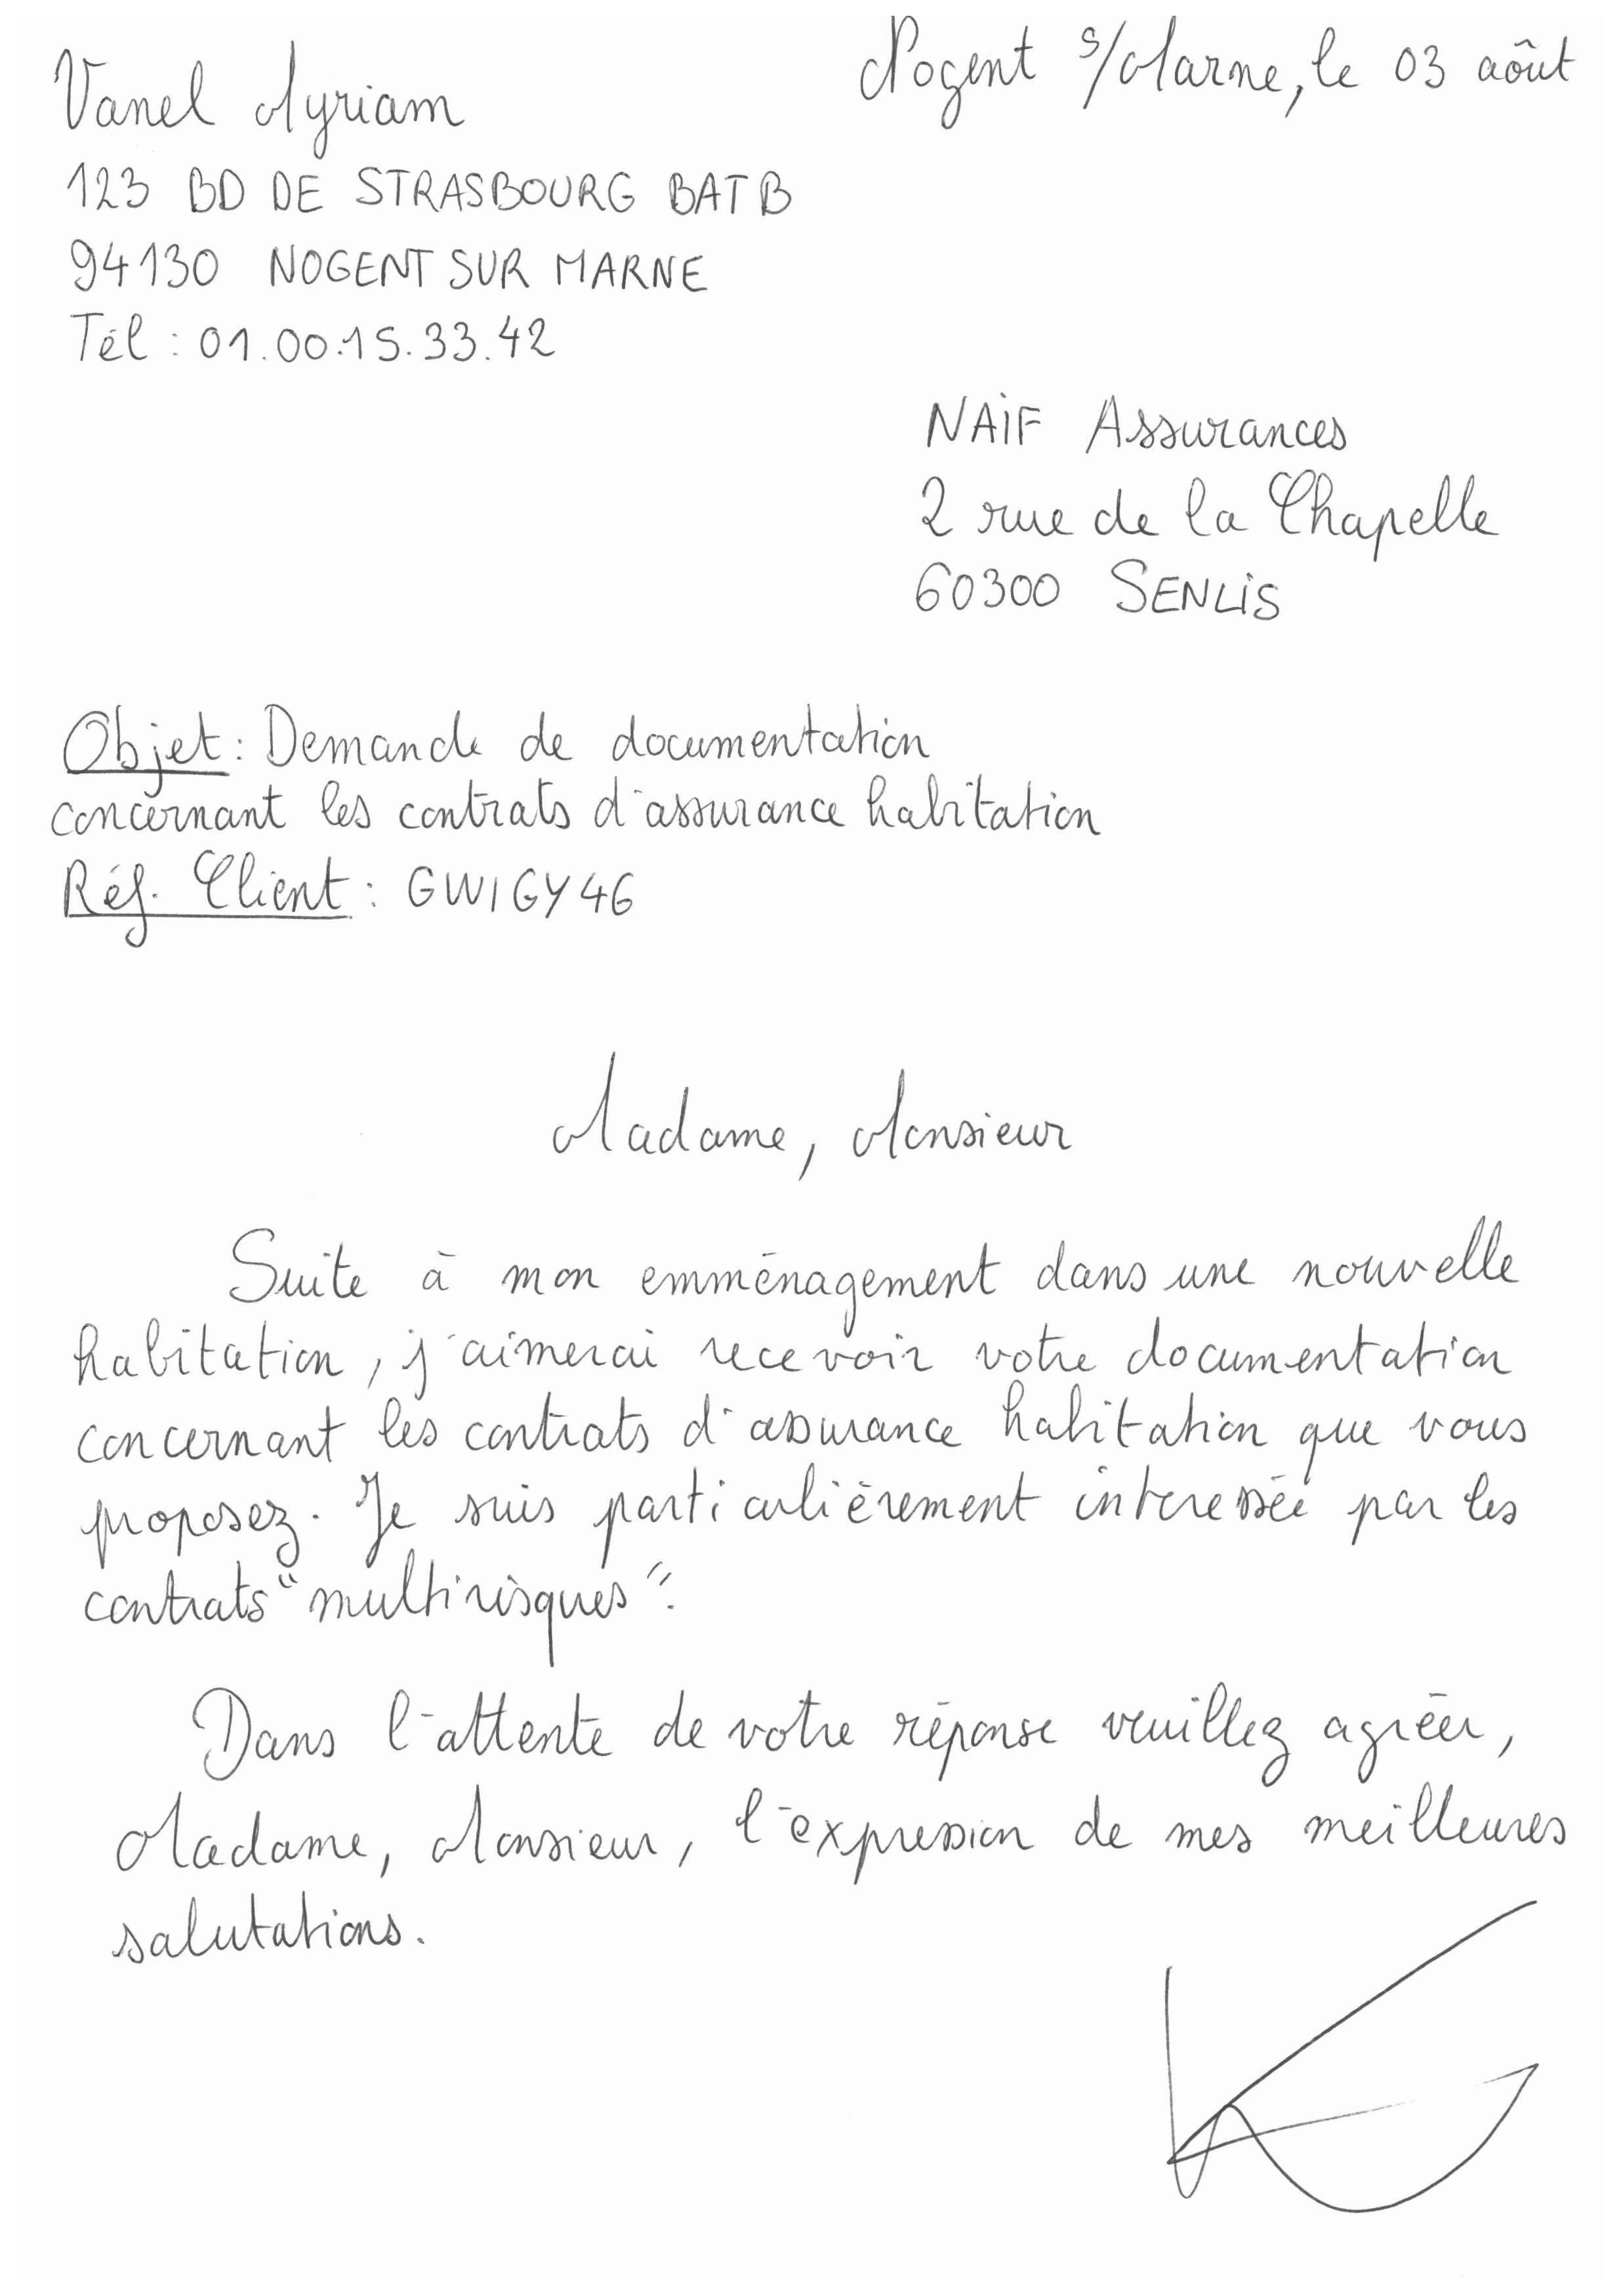 Vanel Myriam
Nogent s/Marne, le 03 août
123 BD DE STRASBOURG BAT B
94130 NOGENT SUR MARNE
Tél : 01.00.15.33.42
NAIF Assurances
2 rue de la Chapelle
60300 SENLIS
Objet : Demande de documentation
concernant les contrats d'assurance habitation
Réf. Client : GWIGY46
Madame, Monsieur
Suite à mon emménagement dans une nouvelle
habitation, j'aimerai recevoir votre documentation
concernant les contrats d'assurance habitation que vous
proposez. Je suis particulièrement interessée par les
contrats "multirisques".
Dans l'attente de votre réponse veuillez agréer,
Madame, Monsieur, l'expression de mes meilleures
salutations.